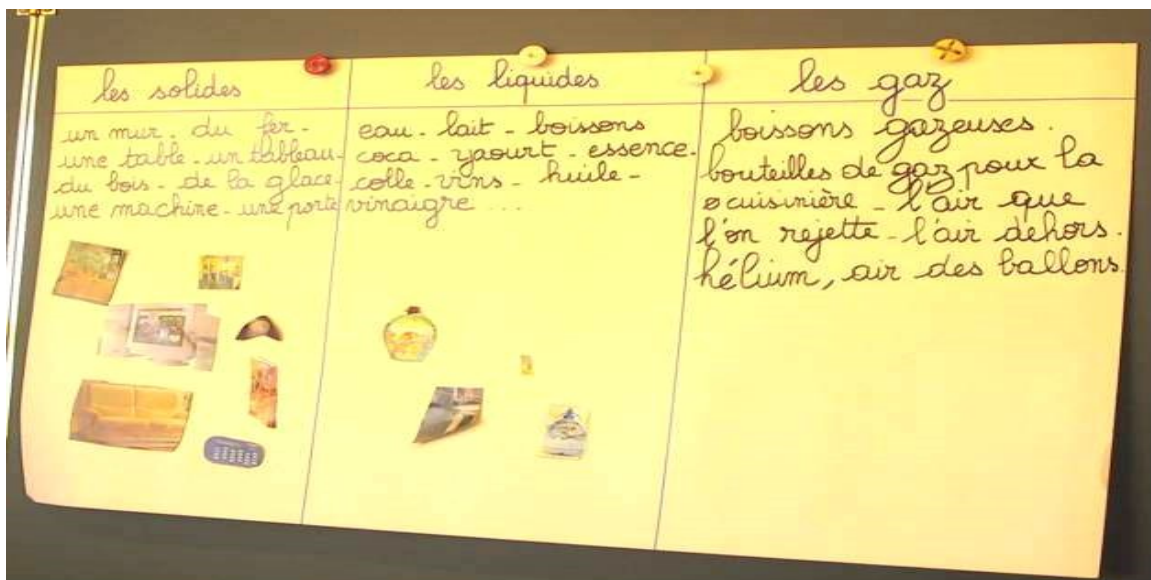 les solides
un mur. du fer.
une table. un tableau.
du bois. de la glace.
une machine. une porte
les liquides
eau. lait. boissons
coca. yaourt. essence.
colle. vins. huile.
vinaigre ...
les gaz
boissons gazeuses.
bouteilles de gaz pour la
cuisinière. l'air que
l'on rejette. l'air dehors.
hélium, air des ballons.